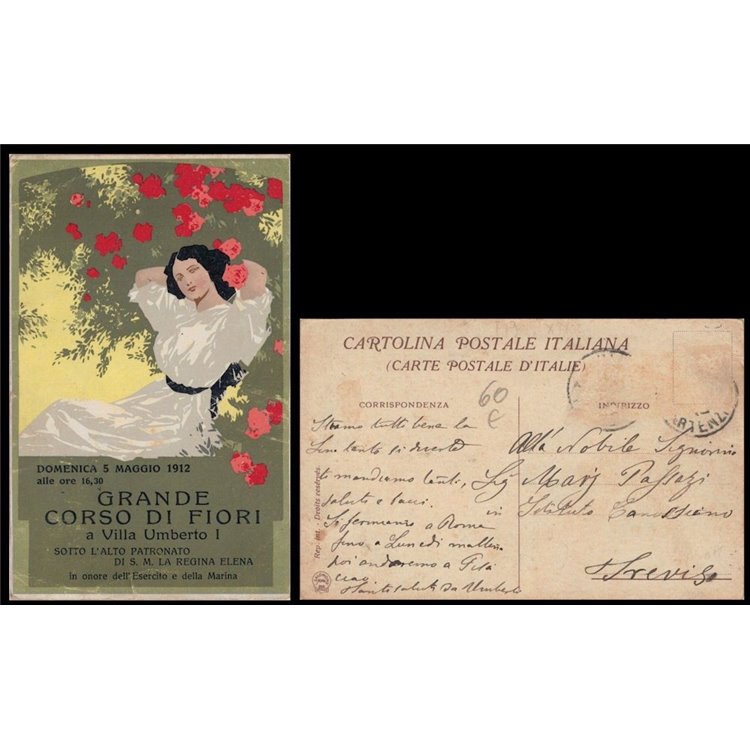 DOMENICA 5 MAGGIO 1912
alle ore 16,30
GRANDE
CORSO DI FIORI
a Villa Umberto I
SOTTO L'ALTO PATRONATO
DI S. M. LA REGINA ELENA
in onore dell'Esercito e della Marina
CARTOLINA POSTALE ITALIANA
(CARTE POSTALE D'ITALIE)
CORRISPONDENZA
60
€
Stiamo tutti bene la
tanto si diverte
ti mandiamo tanti
saluti e baci.
Si fermiamo a Roma
fino a Lunedi
poi andaremo a Pisa
ciao
Tanti saluti da Umberto
Rep. int. - Droits reservés.
INDIRIZZO
Alla Nobile Signorina
Sig Mary
in Istituto Canossiano
Treviso